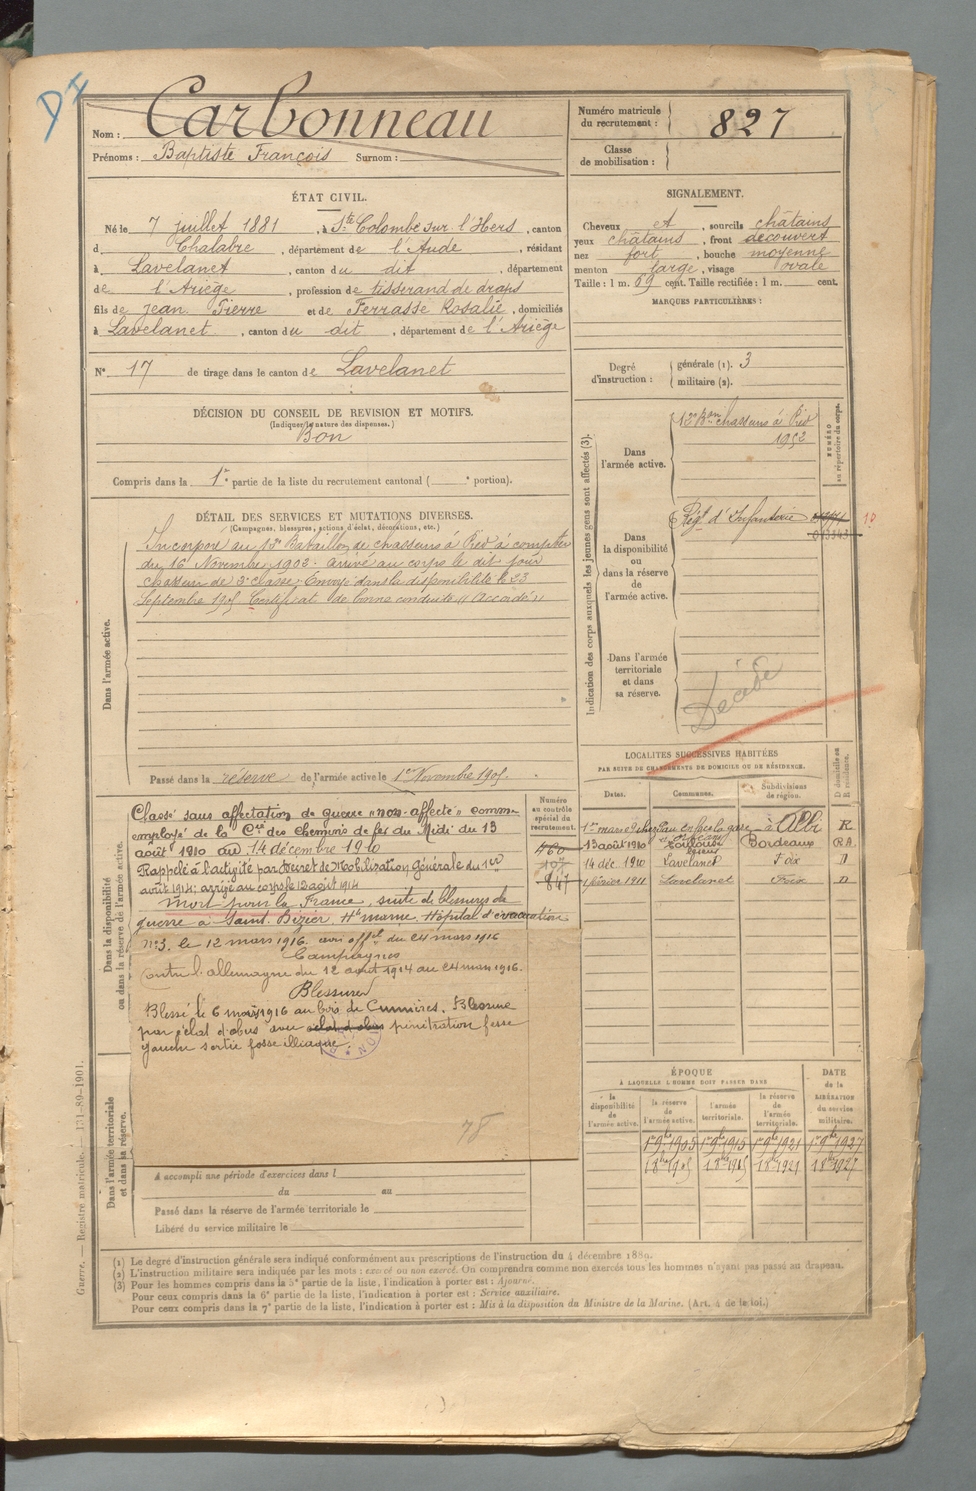 DI
Nom : Carbonneau
Prénoms : Baptiste François Surnom :
Numéro matricule du recrutement : 827
Classe de mobilisation :
ÉTAT CIVIL.
Né le 7 juillet 1881, à Ste Colombe sur l'Hers, canton
d Chalabre, département de l'Aude, résidant
à Lavelanet, canton du dit, département
de l'Ariège, profession de tisserand de draps
fils de jean Pierre et de Ferrasse Rosalie, domiciliés
à Lavelanet, canton du dit, département de l'Ariège
N° 17 de tirage dans le canton de Lavelanet
SIGNALEMENT.
Cheveux et, sourcils châtains
yeux châtains, front découvert
nez fort, bouche moyenne
menton large, visage ovale
Taille : 1 m. 69 cent. Taille rectifiée : 1 m. cent.
MARQUES PARTICULIÈRES :
Degré d'instruction : générale (1). 3
militaire (2).
DÉCISION DU CONSEIL DE REVISION ET MOTIFS.
(Indiquer la nature des dispenses.)
Bon
Compris dans la 1re partie de la liste du recrutement cantonal ( e portion).
DÉTAIL DES SERVICES ET MUTATIONS DIVERSES.
(Campagnes, blessures, actions d'éclat, décorations, etc.)
Dans l'armée active.
Incorporé au Bataillon de chasseurs à Pied à compter
du 16 Novembre 1902. arrivé au corps le dit jour
chasseur de 2e classe. Envoyé dans la disponibilité le 23
Septembre 1905 Certificat de bonne conduite "Accordé"
Passé dans la réserve de l'armée active le 1er Novembre 1905.
Indication des corps auxquels les jeunes gens sont affectés (3).
NUMÉRO au répertoire du corps.
Dans l'armée active.
Bon chasseurs à Pied
Dans la disponibilité ou dans la réserve de l'armée active.
Régt d'Infanterie
Dans l'armée territoriale et dans sa réserve.
Décédé
Dans la disponibilité ou dans la réserve de l'armée active.
Classé sans affectation de guerre "non affecté" comme
employé de la Cie des Chemins de fer du Midi du 13
août 1910 au 14 décembre 1910
Rappelé à l'activité par Décret de Mobilisation Générale du 1er
août 1914; arrivé au corps le 12 août 1914
Mort pour la France, suite de blessures de
guerre à Saint Dizier. Hte marne. Hôpital d'évacuation
n°3. le 12 mars 1916. avis offel du 24 mars 1916
Campagnes
Contre l'allemagne du 12 août 1914 au 24 mars 1916.
Blessures
Blessé le 6 mars 1916 au bois de Cumières. Blessure
par éclat d'obus avec éclat d'obus pénétration fesse
gauche sortie fosse illiaque.
78
Numéro au contrôle spécial du recrutement.
LOCALITÉS SUCCESSIVES HABITÉES
PAR SUITE DE CHANGEMENTS DE DOMICILE OU DE RÉSIDENCE.
Dates. Communes. Subdivisions de région. D domicile ou R résidence.
à Albi R
13 août 1910 Toulouse Bordeaux RA
14 déc. 1910 Lavelanet Foix D
1 février 1911 Lavelanet Foix D
ÉPOQUE
À LAQUELLE L'HOMME DOIT PASSER DANS
DATE de la LIBÉRATION du service militaire.
la disponibilité de l'armée active.
la réserve de l'armée active.
l'armée territoriale.
la réserve de l'armée territoriale.
1er 9bre 1905 1er 9bre 1915 1er 9bre 1921 1er 9bre 1927
Dans l'armée territoriale et dans sa réserve.
A accompli une période d'exercices dans l
du au
Passé dans la réserve de l'armée territoriale le
Libéré du service militaire le
(1) Le degré d'instruction générale sera indiqué conformément aux prescriptions de l'instruction du 4 décembre 1889.
(2) L'instruction militaire sera indiquée par les mots : exercé ou non exercé. On comprendra comme non exercés tous les hommes n'ayant pas passé au drapeau.
(3) Pour les hommes compris dans la 5e partie de la liste, l'indication à porter est : Ajourné.
Pour ceux compris dans la 6e partie de la liste, l'indication à porter est : Service auxiliaire.
Pour ceux compris dans la 7e partie de la liste, l'indication à porter est : Mis à la disposition du Ministre de la Marine. (Art. 4 de la loi.)
Guerre. — Registre matricule. — 131-89-1901.